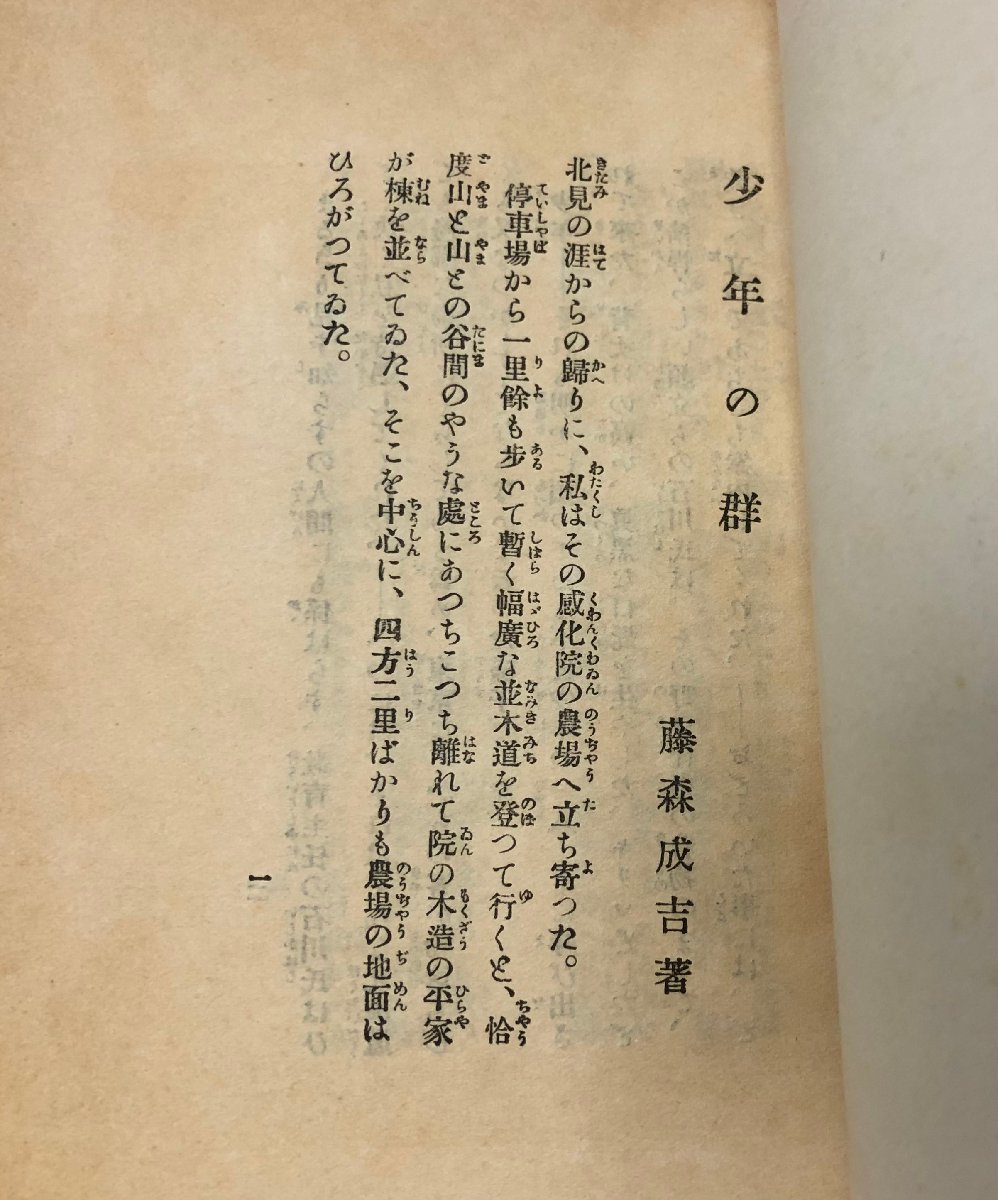 少年の群
藤森成吉著
北見の涯からの歸りに、私はその感化院の農場へ立ち寄つた。
停車場から一里餘も歩いて暫く幅廣な並木道を登つて行くと、恰
度山と山との谷間のやうな處にあつちこつち離れて院の木造の平家
が棟を並べてゐた、そこを中心に、四方二里ばかりも農場の地面は
ひろがつてゐた。
一